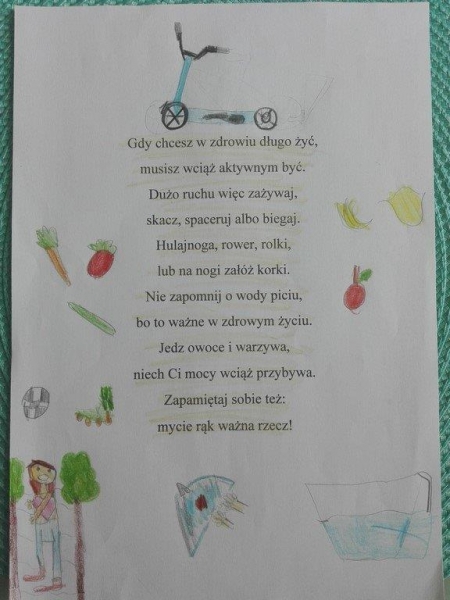 Gdy chcesz w zdrowiu długo żyć,
musisz wciąż aktywnym być.
Dużo ruchu więc zażywaj,
skacz, spaceruj albo biegaj.
Hulajnoga, rower, rolki,
lub na nogi załóż korki.
Nie zapomnij o wody piciu,
bo to ważne w zdrowym życiu.
Jedz owoce i warzywa,
niech Ci mocy wciąż przybywa.
Zapamiętaj sobie też:
mycie rąk ważna rzecz!